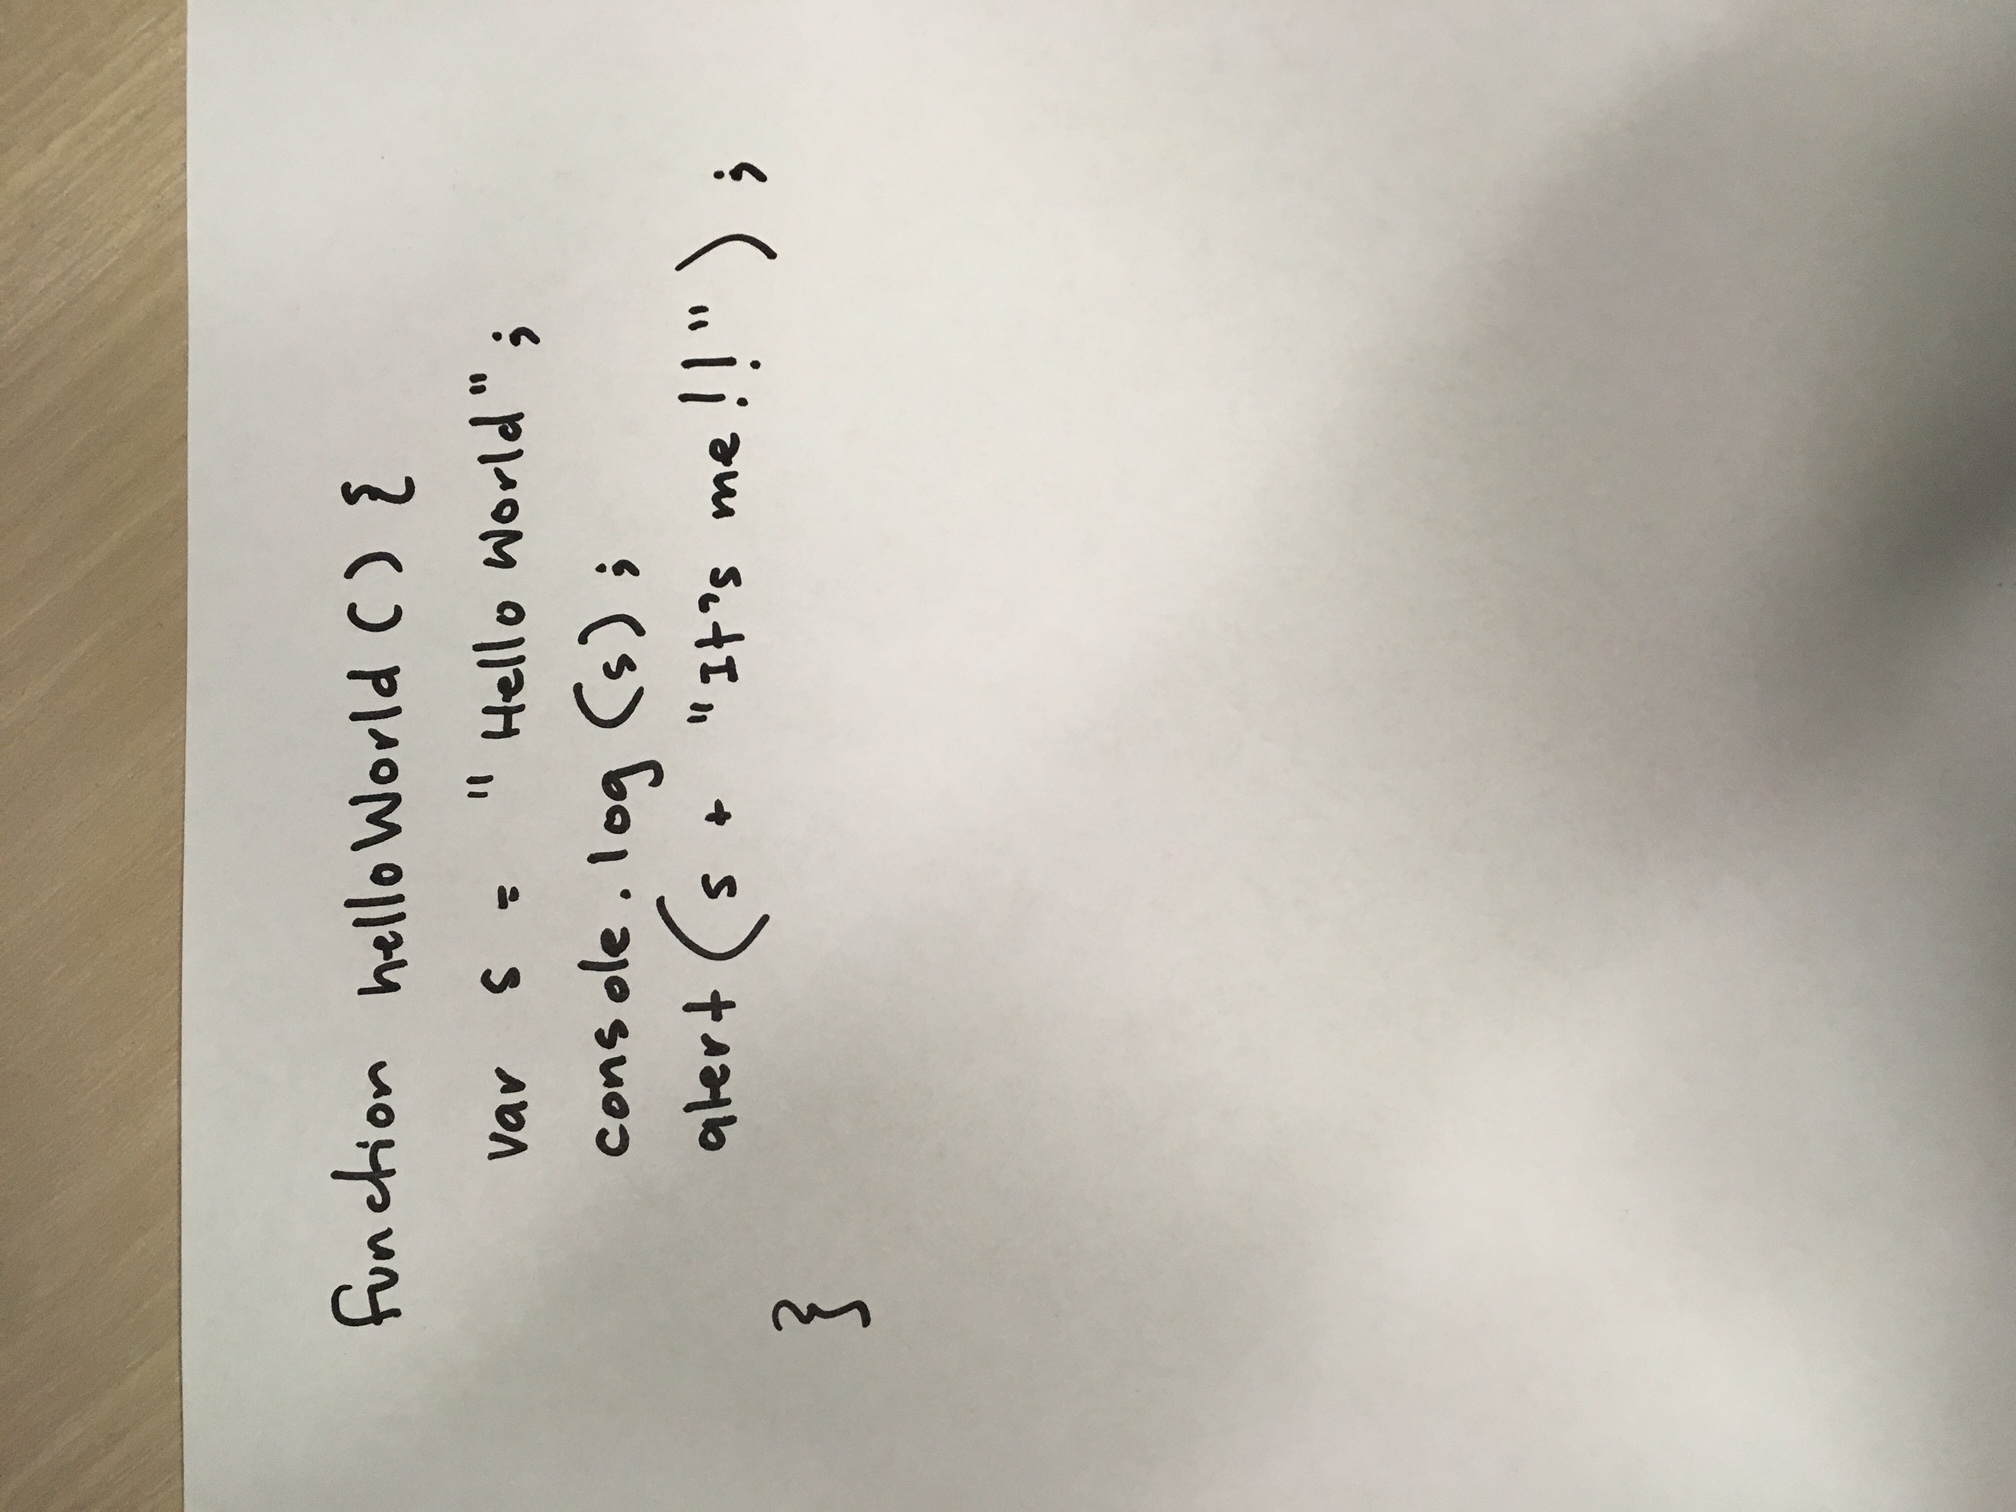 function helloWorld () {
var s = "Hello World";
console.log (s);
alert (s + "It's me!!");
}